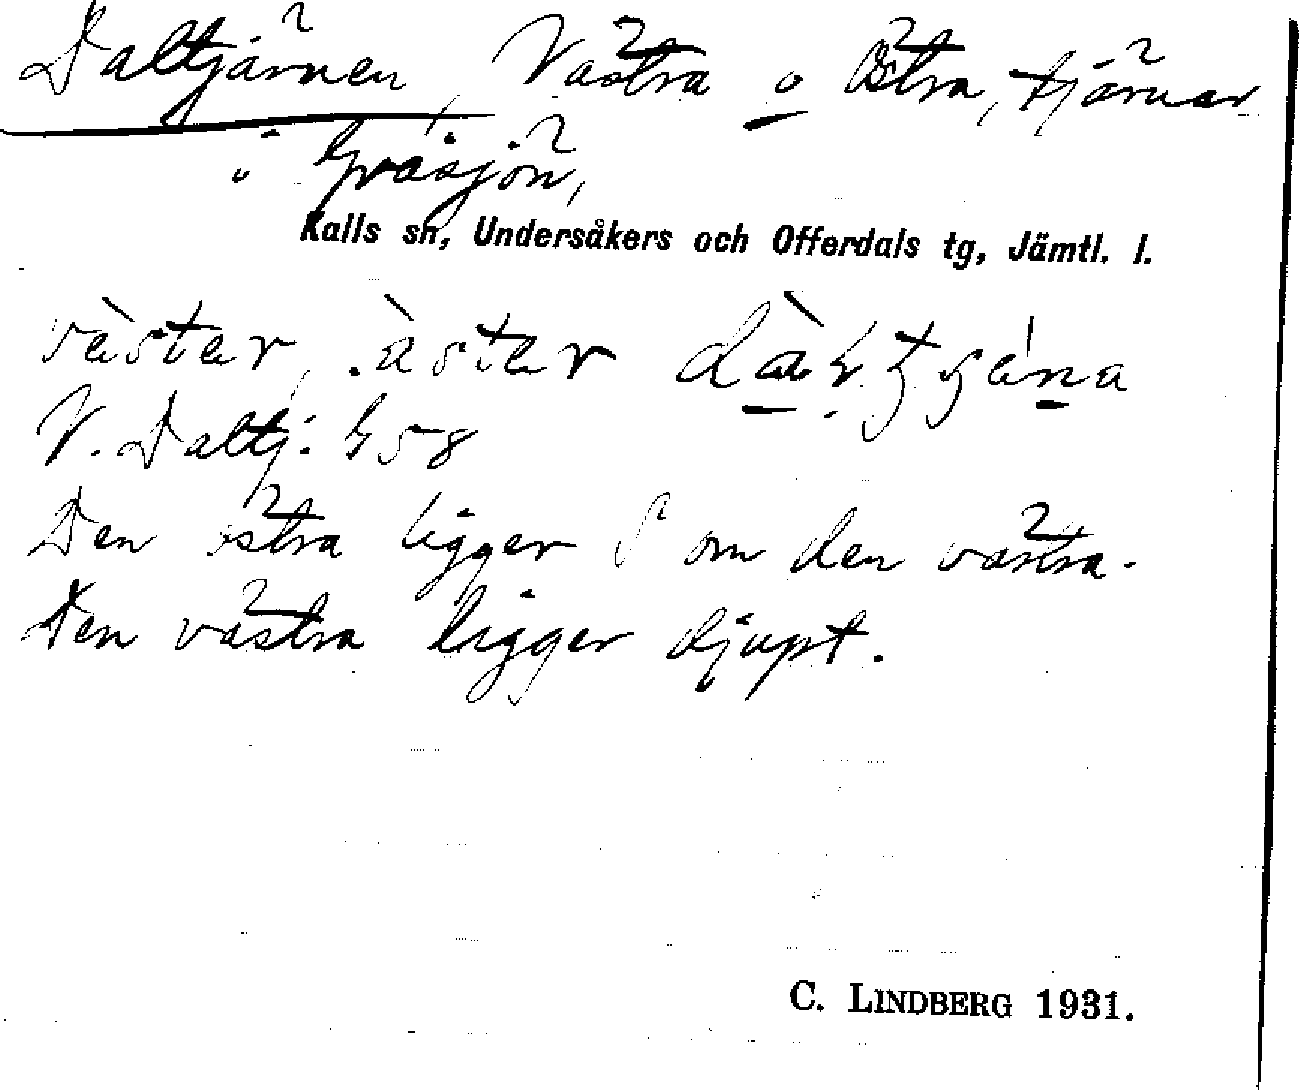 Daltjärnen, Västra o Östra, tjärnar
i Gråsjön,
Kalls sn, Undersåkers och Offerdals tg, Jämtl. l.
V. Daltj. 458
Den östra ligger S om den västra.
Den västra ligger djupt.
C. LINDBERG 1931.